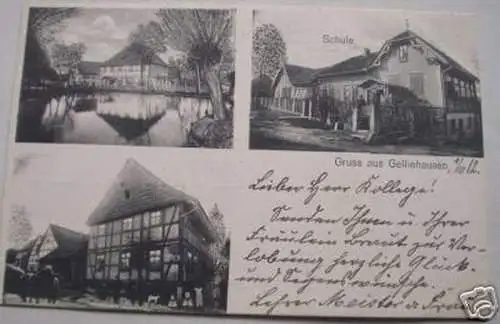 Schule
Gruss aus Gelliehausen,
Lieber Herr Kollege!
Senden Ihnen u. Ihrer
Fräulein Braut zur Ver-
lobung herzliche Glück-
und Segenswünsche.
Lehrer Meister u. Frau
ebay